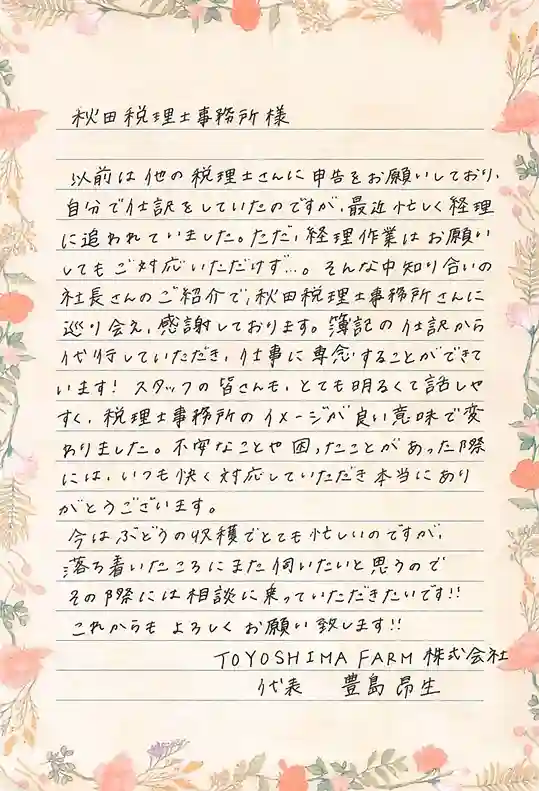 秋田税理士事務所様
以前は他の税理士さんに申告をお願いしており、
自分で仕訳をしていたのですが、最近忙しく経理
に追われていました。ただ、経理作業はお願い
してもご対応いただけず…。そんな中知り合いの
社長さんのご紹介で、秋田税理士事務所さんに
巡り会え、感謝しております。簿記の仕訳から
代行していただき、仕事に専念することができて
います！スタッフの皆さんも、とても明るくて話しや
すく、税理士事務所のイメージが良い意味で変
わりました。不安なことや困ったことがあった際
には、いつも快く対応していただき本当にあり
がとうございます。
今はぶどうの収穫でとても忙しいのですが、
落ち着いたころにまた伺いたいと思うので
その際には相談に乗っていただきたいです!!
これからもよろしくお願い致します!!
TOYOSHIMA FARM 株式会社
代表 豊島昂生